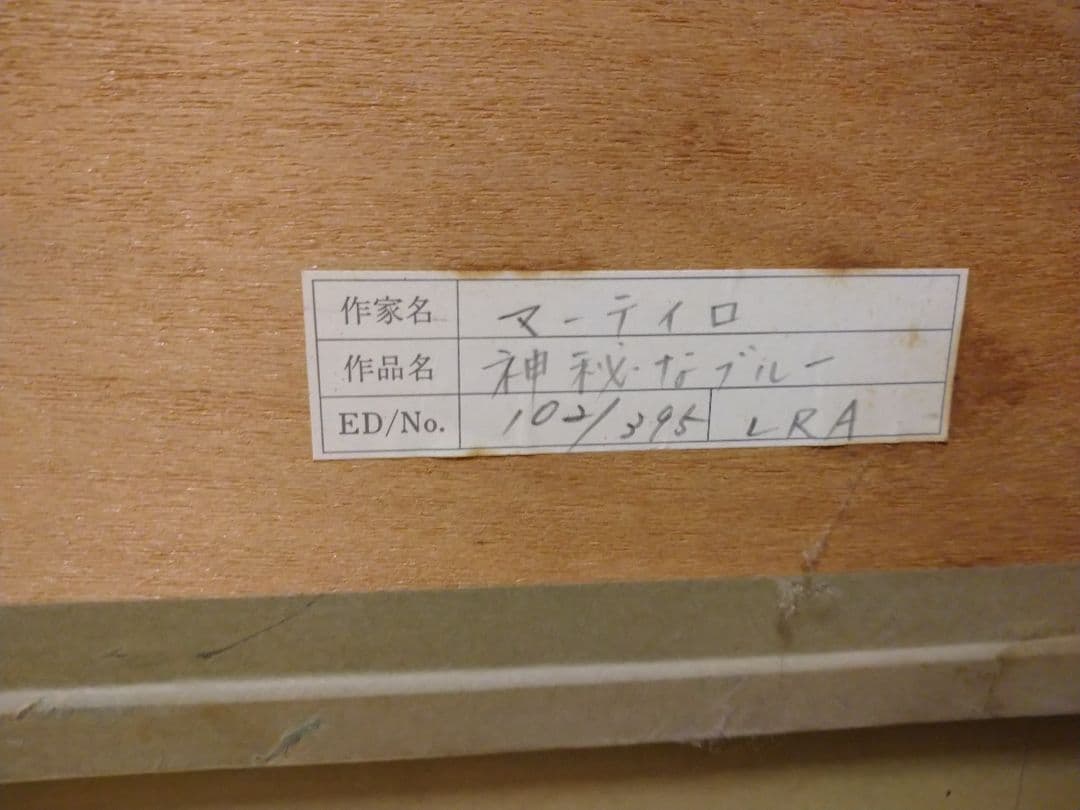 作家名 マーティロ
作品名 神秘なブルー
ED/No. 102/395 LRA